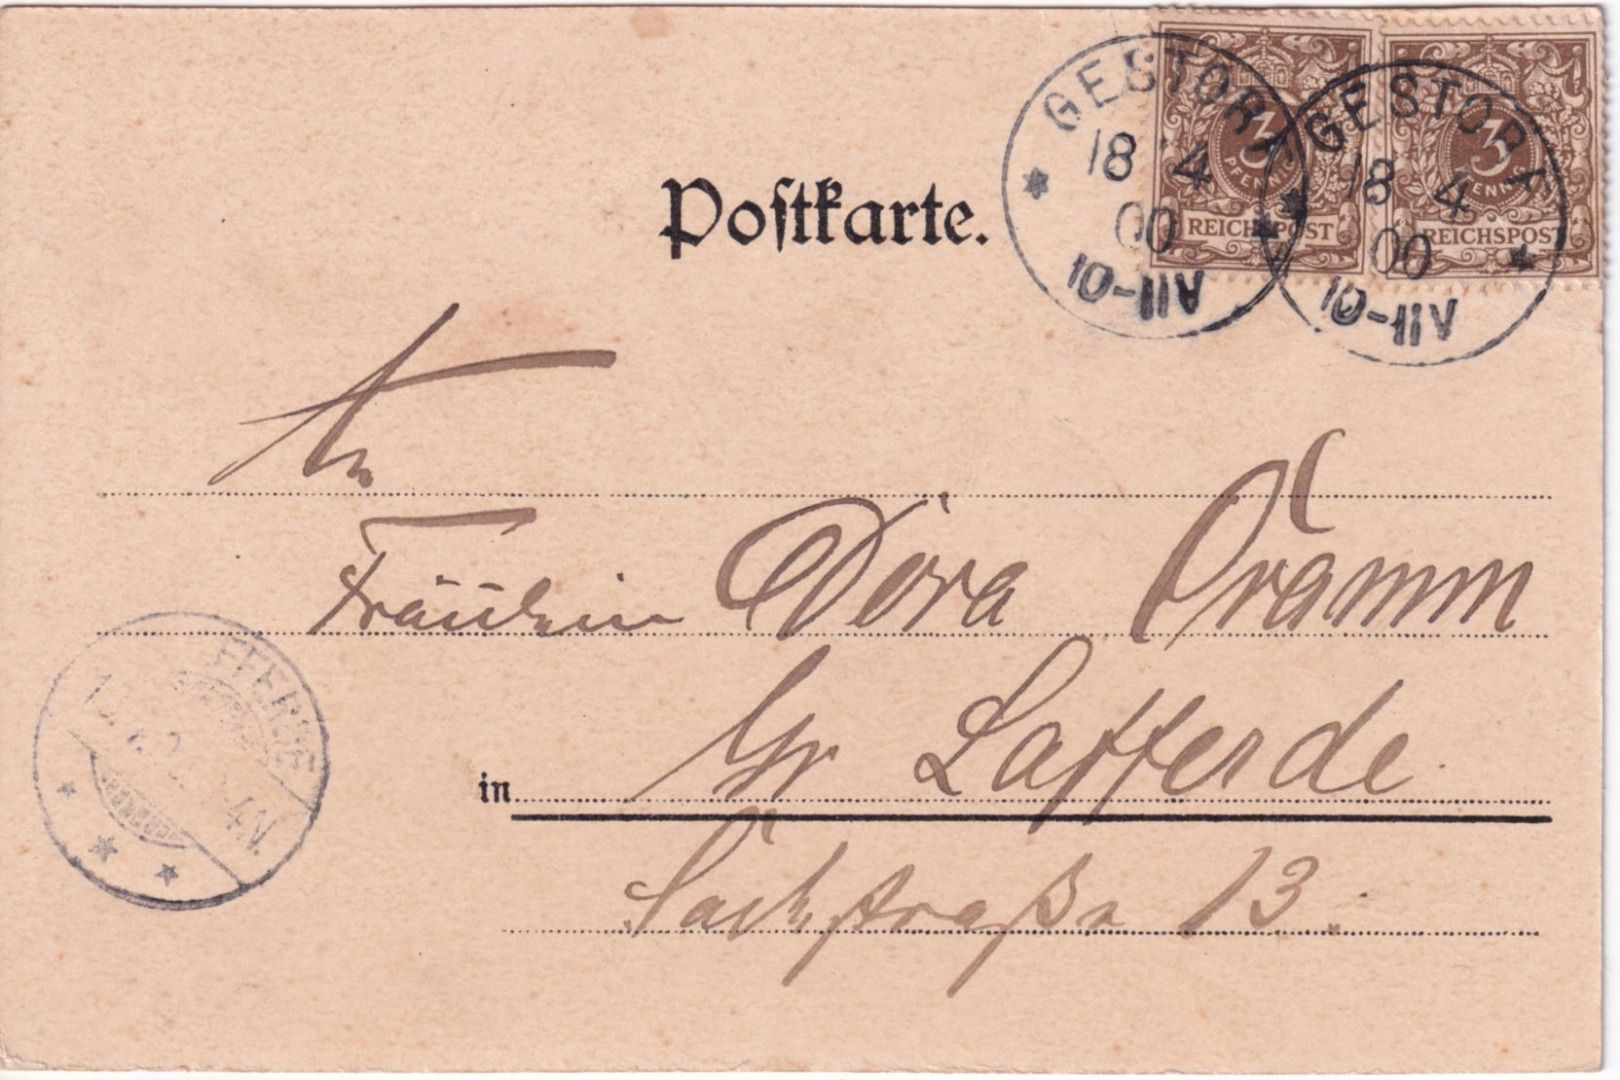 Postkarte.
GESTORF
18 4
00
10-11V
GESTORF
18 4
00
10-11V
3
PFENNIG
REICHSPOST
3
PFENNIG
REICHSPOST
An
Fräulein Dora Cramm
in Gr Lafferde
FFERDE
4-5N.
straße 13.